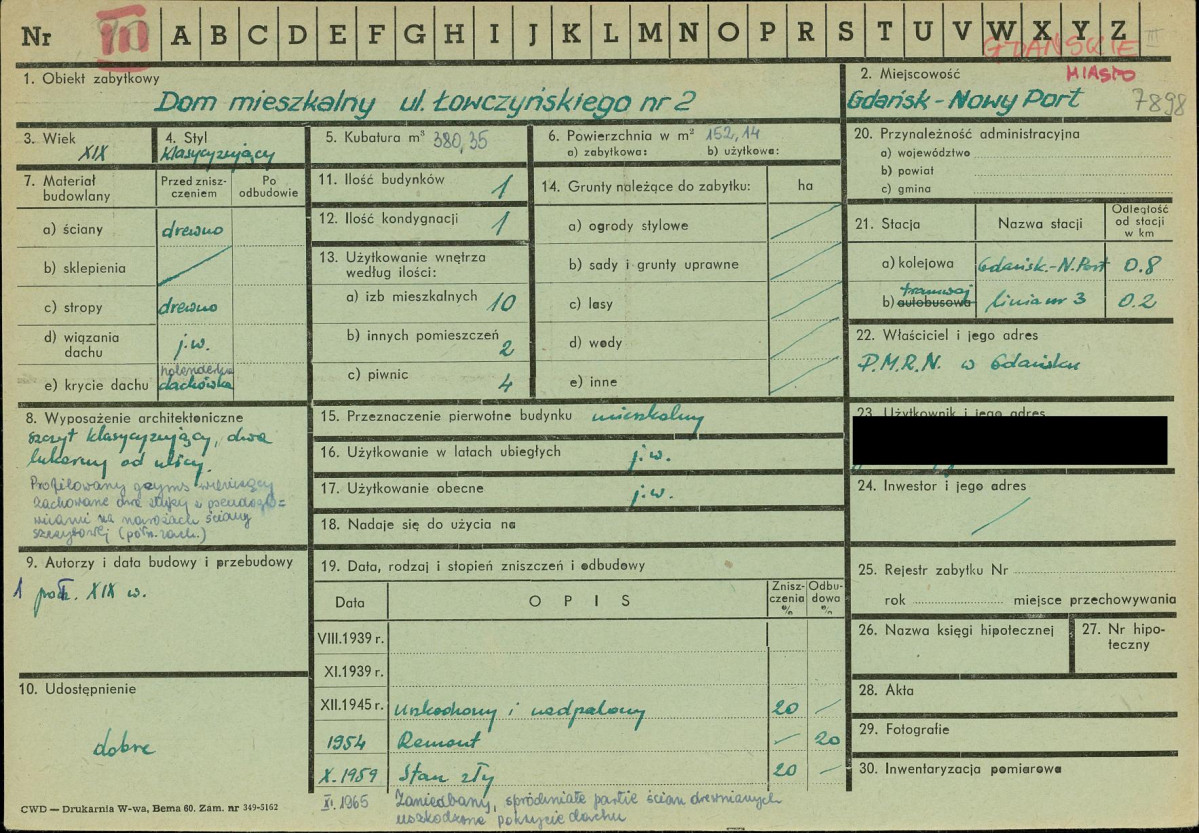 Nr III A B C D E F G H I J K L M N O P R S T U V W X Y Z
GDAŃSKIE III
MIASTO
1. Obiekt zabytkowy
Dom mieszkalny ul. Łowczyńskiego nr 2
2. Miejscowość
Gdańsk - Nowy Port 7898
3. Wiek
XIX
4. Styl
klasycyzujący
5. Kubatura m³ 380,35
6. Powierzchnia w m² 152,14
a) zabytkowa: b) użytkowa:
7. Materiał budowlany
Przed znisz-
czeniem
Po
odbudowie
a) ściany drewno
b) sklepienia
c) stropy drewno
d) wiązania
dachu j.w.
holenderka
e) krycie dachu dachówka
8. Wyposażenie architektoniczne
szczyt klasycyzujący, dwa
lukarny od ulicy.
Profilowany gzyms wieńczący
zachowane dwa słupy z pseudogło=
wicami na narożach ściany
szczytowej (półn. zach.)
9. Autorzy i data budowy i przebudowy
1 poł. XIX w.
10. Udostępnienie
dobre
11. Ilość budynków 1
12. Ilość kondygnacji 1
13. Użytkowanie wnętrza
według ilości:
a) izb mieszkalnych 10
b) innych pomieszczeń 2
c) piwnic 4
14. Grunty należące do zabytku: ha
a) ogrody stylowe
b) sady i grunty uprawne
c) lasy
d) wody
e) inne
15. Przeznaczenie pierwotne budynku mieszkalny
16. Użytkowanie w latach ubiegłych j.w.
17. Użytkowanie obecne j.w.
18. Nadaje się do użycia na
19. Data, rodzaj i stopień zniszczeń i odbudowy
Data OPIS Znisz-
czenia
%
Odbu-
dowa
%
VIII.1939 r.
XI.1939 r.
XII.1945 r. uszkodzony i nadpalony 20 –
1954 Remont – 20
X.1959 Stan zły 20 –
XI.1965 Zaniedbany, spróchniałe partie ścian drewnianych
uszkodzone pokrycie dachu
20. Przynależność administracyjna
a) województwo
b) powiat
c) gmina
21. Stacja Nazwa stacji Odległość
od stacji
w km
a) kolejowa Gdańsk.-N.Port 0.8
tramwaj
b) autobusowa linia nr 3 0.2
22. Właściciel i jego adres
P.M.R.N. w Gdańsku
23. Użytkownik i jego adres
24. Inwestor i jego adres
25. Rejestr zabytku Nr
rok miejsce przechowywania
26. Nazwa księgi hipotecznej
27. Nr hipo-
teczny
28. Akta
29. Fotografie
30. Inwentaryzacja pomiarowa
CWD — Drukarnia W-wa, Bema 60. Zam. nr 349-5162